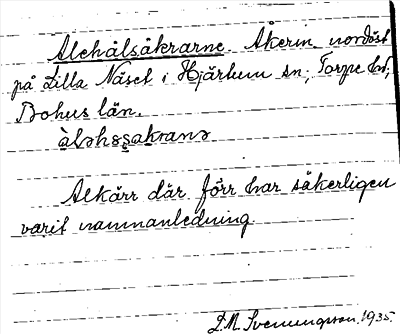 Alehålsåkrarne. Åkerin nordöst
på Lilla Näset i Hjärtum sn; Torpe hd;
Bohus län.
àləhɷsakranə
Alkärr där förr har säkerligen
varit namnanledning.
D.M. Svenungsson. 1935.